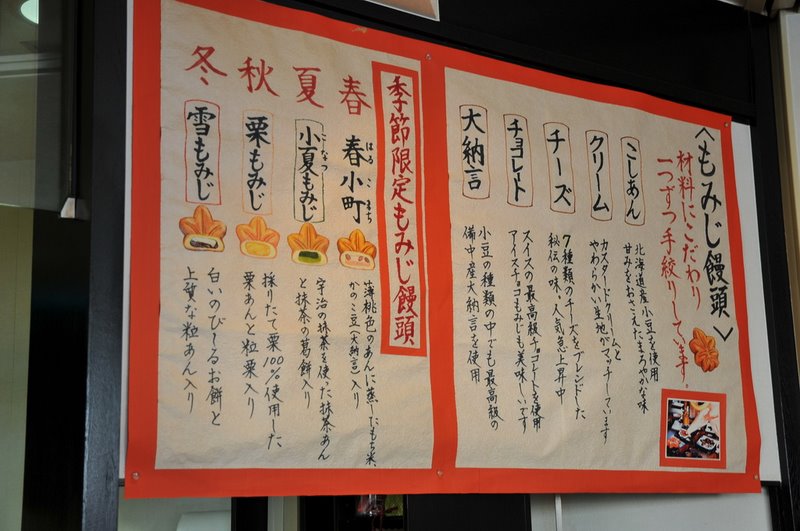 ＜もみじ饅頭＞
材料にこだわり
一つずつ手絞りしています。
こしあん
北海道産小豆を使用
甘みをおさえたまろやかな味
クリーム
カスタードクリームと
やわらかい生地がマッチしています
チーズ
7種類のチーズをブレンドした
秘伝の味、人気急上昇中
チョコレート
スイスの最高級チョコレートを使用
アイスチョコもみじも美味しいです
大納言
小豆の種類の中でも最高級の
備中産大納言を使用
季節限定もみじ饅頭
春
春小町
はるこまち
薄桃色のあんに蒸したもち米、
かのこ豆(大納言)入り
夏
小夏もみじ
こなつ
宇治の抹茶を使った抹茶あん
と抹茶の葛餅入り
秋
栗もみじ
採りたて栗100%使用した
栗あんと粒栗入り
冬
雪もみじ
白いのび〜るお餅と
上質な粒あん入り